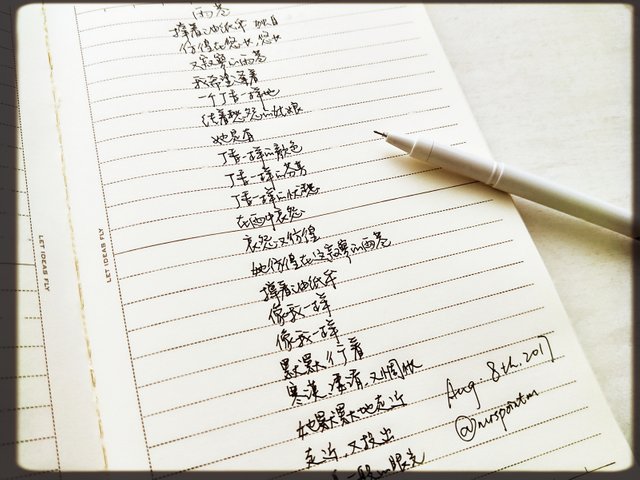 雨巷
撑着油纸伞 独自
彷徨在悠长、悠长
又寂寥的雨巷
我希望逢着
一个丁香一样地
结着愁怨的姑娘
她是有
丁香一样的颜色
丁香一样的芬芳
丁香一样的忧愁
在雨中哀怨
哀怨又彷徨
她彷徨在这寂寥的雨巷
撑着油纸伞
像我一样
像我一样
默默彳亍着
寒漠、凄清、又惆怅
她默默地走近
走近、又投出
一般的眼光
Aug 8th. 2017
LET IDEAS FLY
LET IDEAS FLY